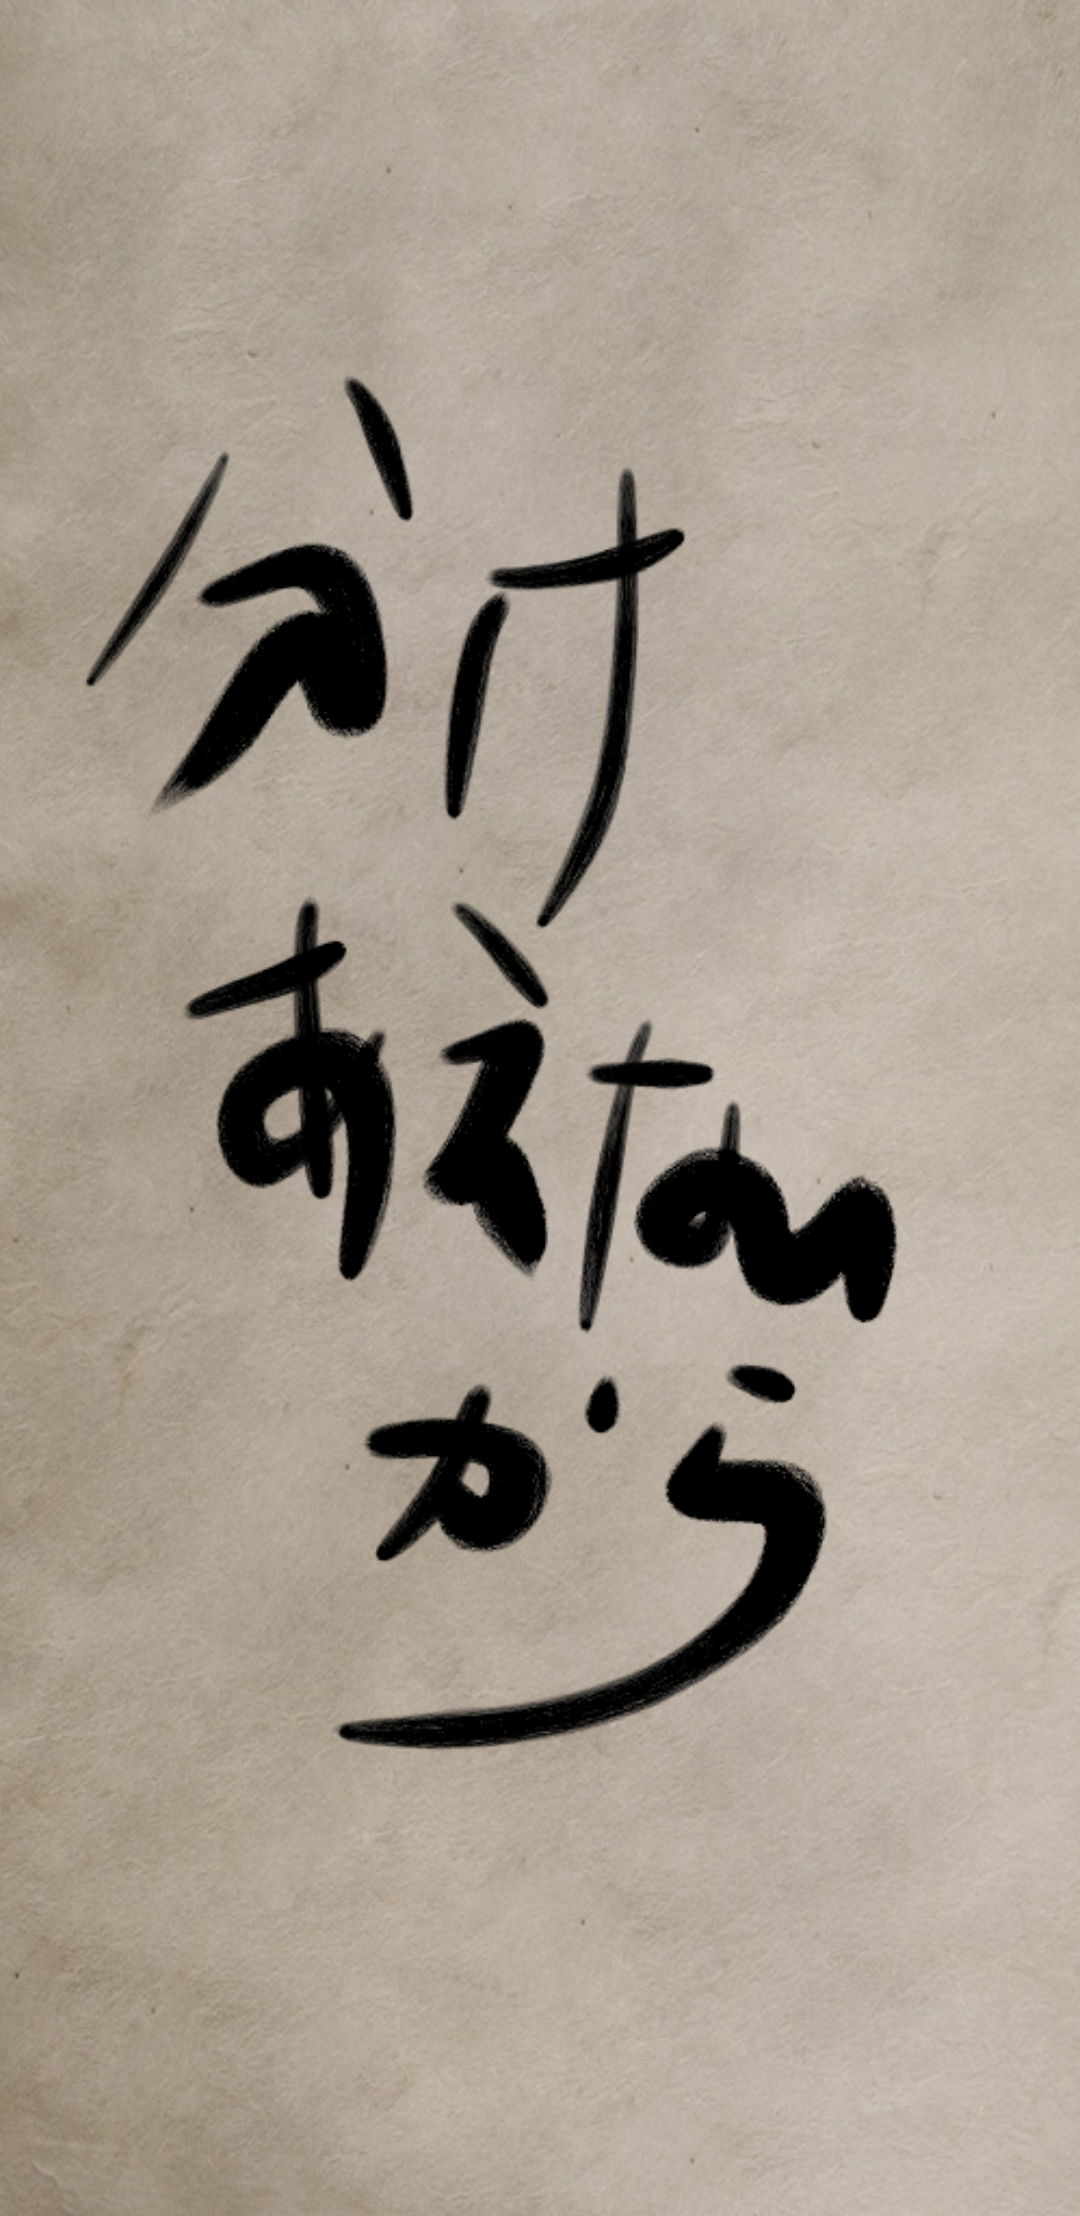 分け
あえた
から